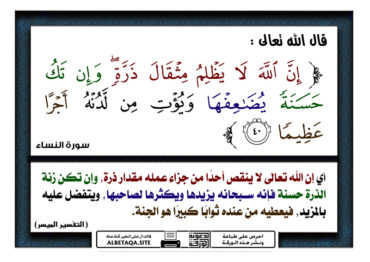 قال الله تعالى :
﴿ إِنَّ ٱللَّهَ لَا يَظْلِمُ مِثْقَالَ ذَرَّةٍۖ وَإِن تَكُ
حَسَنَةٗ يُضَٰعِفْهَا وَيُؤْتِ مِن لَّدُنْهُ أَجْرًا
عَظِيمٗا ٤٠ ﴾
سورة النساء
اي إن الله تعالى لا ينقص أحدًا من جزاء عمله مقدار ذرة, وإن تكن زنة
الذرة حسنة فإنه سبحانه يزيدها ويكثرها لصاحبها, ويتفضل عليه
بالمزيد, فيعطيه من عنده ثوابًا كبيرًا هو الجنة.
( التفسير الميسر )
احرص على طباعة
ونشر هذه الورقة
فالدال على الخير كفاعله
ALBETAQA.SITE